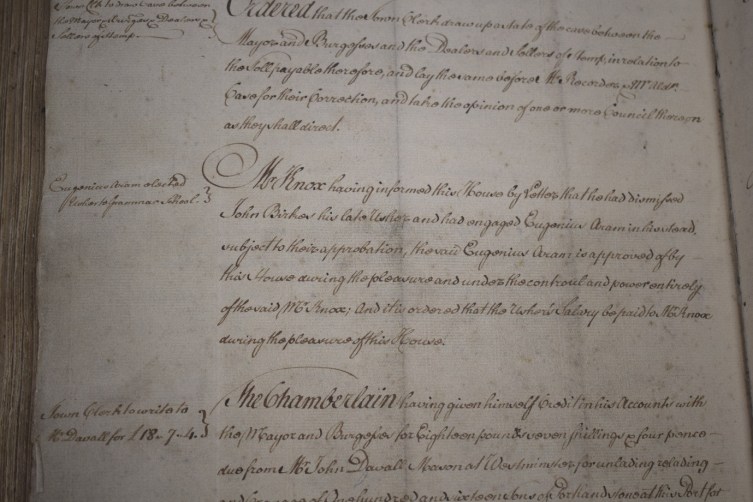 Town Clk to draw Case between
the Mayor & Burgesses & Dealers &
Sellers of Hemp.
Ordered that the Town Clerk draw up a state of the case between the
Mayor and Burgesses and the Dealers and Sellers of Hemp, in relation to
the Toll payable therefore, and lay the same before Mr Recorder & Mr Alder.
Case for their Correction, and take the opinion of one or more Council thereon
as they shall direct.
Eugenius Aram elected
Usher to Grammar School.
Mr Knox having informed this House by Letter that he had dismissed
John Birkes his late Usher and had engaged Eugenius Aram in his stead,
subject to their approbation, the said Eugenius Aram is approved of by
this House during the pleasure and under the controul and power entirely
of the said Mr Knox; And it is ordered that the Usher's Salary be paid to Mr Knox
during the pleasure of this House.
Town Clerk to write to
Mr Davall for £18-7-4.
The Chamberlain having given himself Credit in his Accounts with
the Mayor and Burgesses for Eighteen pounds seven shillings & four pence
due from Mr John Davall Mason at Westminster for unlading & lading
One hundred and sixteen tons of Portland stone at this Port for